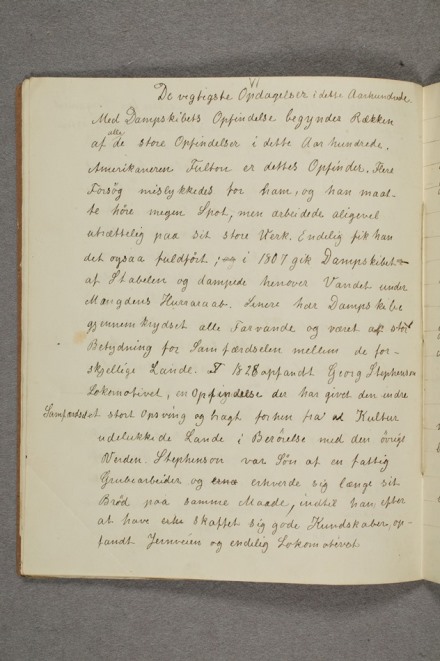 VI
De vigtigste Opdagelser i dette Aarhundrede
Med Dampskibets Opfindelse begyndes Rækken
af alle de store Opfindelser i dette Aarhundrede.
Amerikaneren Fulton er dettes Opfinder. Flere
Forsøg mislykkedes for ham, og han maat-
te höre megen Spot, men arbeidede aligevel
utrættelig paa sit store Werk. Endelig fik han
det ogsaa fuldført, i 1807 gik Dampskibet
af Stabelen og dampede henover Vandet under
Mængdens Hurraraab. Senere har Dampskibe
gjennemkrydset alle Farvande og været af stor
Betydning for Samfærdselen mellem de for-
skjellige Lande. I 1828 opfandt Georg Stephenson
Lokomotivet, en Opfindelse der har givet den indre
Samfærdsel et stort Opsving og bragt forhen fra Kultur
udelukkede Lande i Berørelse med den övrige
Verden. Stephenson var Søn af en fattig
Grubearbeider og erhverde sig længe sit
Bröd paa samme Maade, indtil han efter
at have skaffet sig gode Kundskaber, op-
fandt Jernveien og endelig Lokomotivet